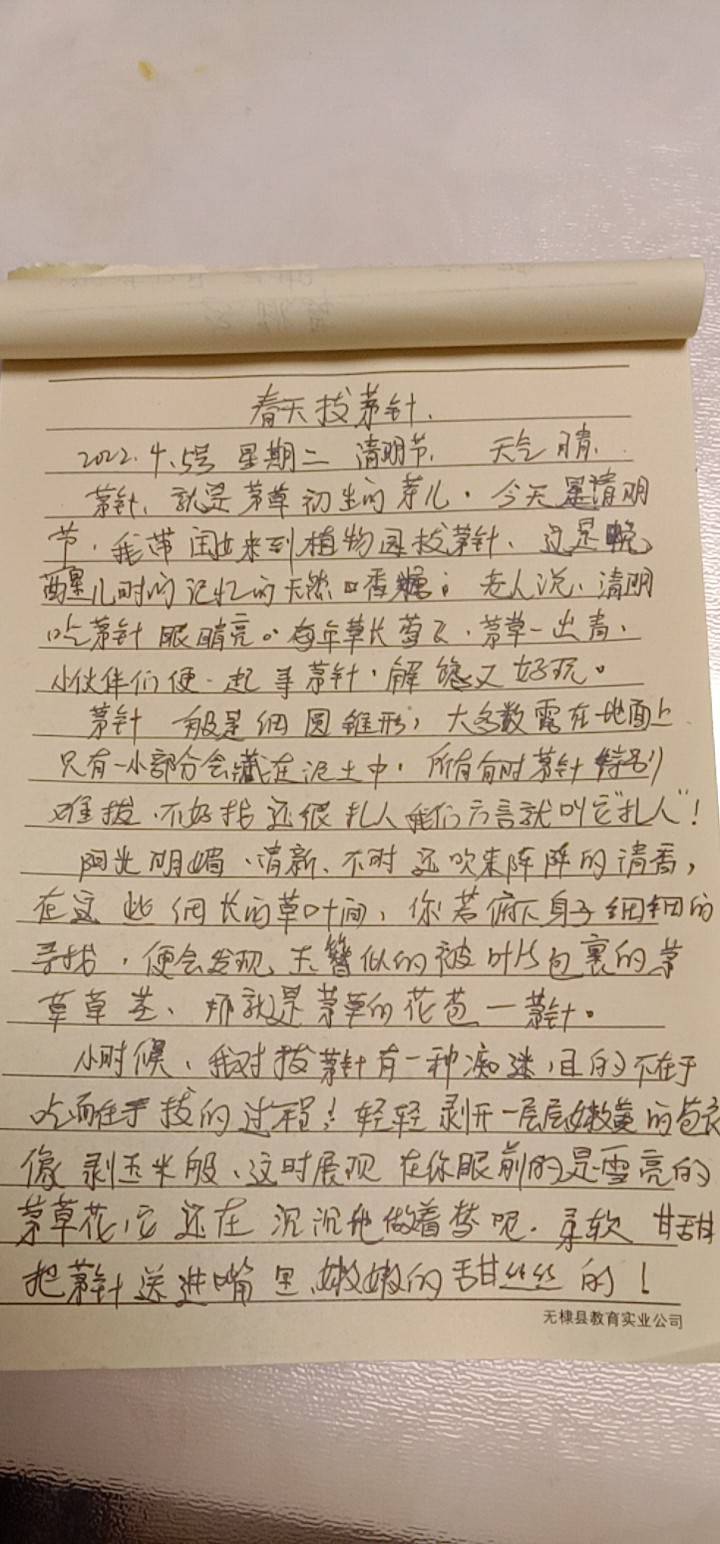 春天拔茅针.
2022.4.5号 星期二 清明节. 天气晴.
茅针、就是茅草初生的芽儿. 今天是清明
节, 我带闺女来到植物园拔茅针、这是唤
醒儿时的记忆的天然口香糖; 老人说、清明
吃茅针眼睛亮。每年草长莺飞、茅草一出青、
小伙伴们便一起寻茅针, 解馋又好玩。
茅针一般是细圆锥形, 大多数露在地面上
只有一小部分会藏在泥土中. 所有有时茅针特别
难拔、不好拔还很扎人我们方言就叫它“扎人”!
阳光明媚、清新、不时还吹来阵阵的清香,
在这些细长的草叶间, 你若俯下身子细细的
寻找, 便会发现、玉簪似的被叶片包裹的茅
草草茎、那就是茅草的花苞—茅针。
小时候、我对拔茅针有一种痴迷, 目的不在于
吃而在于拔的过程! 轻轻剥开一层层嫩黄的苞衣
像剥玉米般、这时展现在你眼前的是雪亮的
茅草花, 它还在沉沉地做着梦呢. 柔软甘甜
把茅针送进嘴里、嫩嫩的甜丝丝的!
无棣县教育实业公司